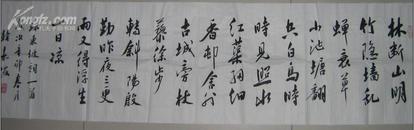 林断山明
竹隐墙乱
蝉衰草
小池塘翻
空白鸟時
時見照水
红蕖细细
香邨舍外
古城旁杖
藜徐步
转斜阳殷
勤昨夜三更
雨又得浮生
一日凉
东坡词一首
辛卯春月